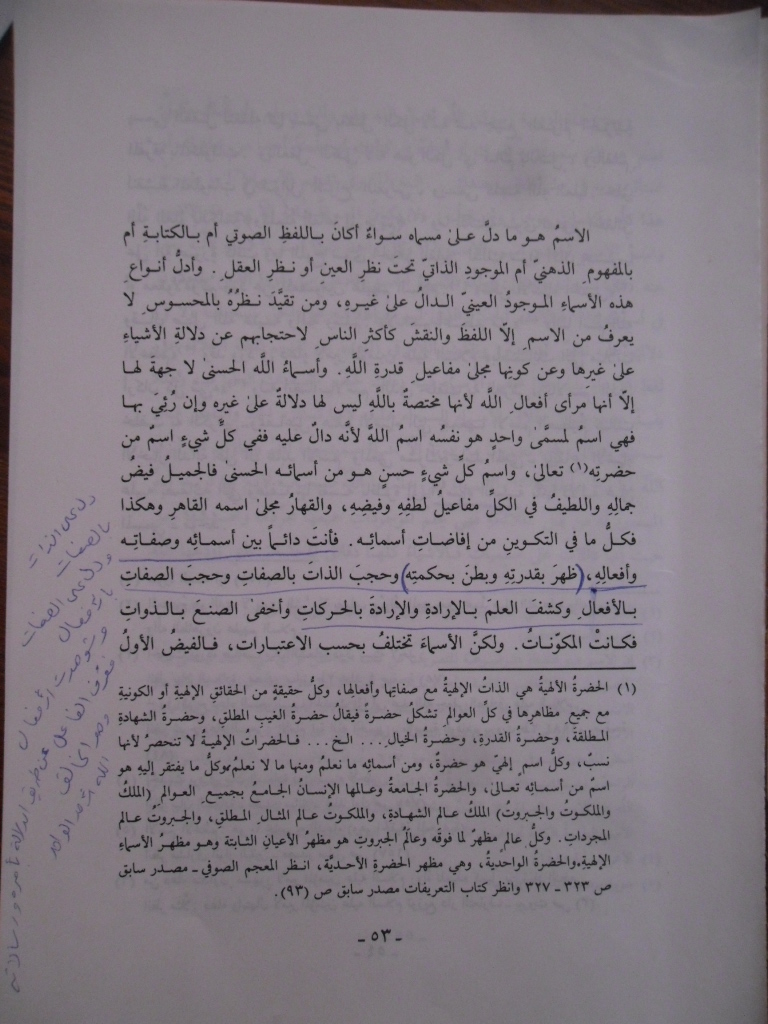 الاسمُ هـو ما دلَّ علىٰ مسماه سـواءً أكانَ بـاللفظِ الصوتي أم بـالكتابـةِ أم
بالمفهومِ الذهنيّ أم الموجودِ الذاتيّ تحتَ نظرِ العينِ أو نـظرِ العقلِ . وأدلُّ أنـواعِ
هذه الأسماءِ المـوجودُ العينيّ الـدالُ علىٰ غيـرِهِ، ومن تقيَّدَ نـظرُهُ بالمحسـوسِ لا
يعرفُ من الاسمِ إلّا اللفظَ والنقشَ كأكثرِ الناسِ لاحتجابهم عن دلالةِ الأشياءِ
علىٰ غيرِها وعن كونِها مجلىٰ مفاعيلِ قدرةِ اللَّهِ. وأسـماءُ اللَّه الحسنىٰ لا جهةَ لهـا
إلّا أنها مرأى أفعالِ اللَّه لأنها مختصةٌ باللَّهِ ليس لها دلالةٌ علىٰ غيرِه وإن رُئِيَ بهـا
فهي اسمٌ لمسمَّى واحدٍ هو نفسُه اسمُ اللهَ لأنَّه دالٌ عليه ففي كلِّ شيءٍ اسمٌ من
حضرتِه(١) تعالىٰ، واسمُ كلِّ شيءٍ حسنٍ هـو من أسمائـه الحسنىٰ فالجميـلُ فيضُ
جمالِهِ واللطيفُ في الكلِّ مفاعيلُ لطفِهِ وفيضِهِ، والقهارُ مجلىٰ اسمه القاهرِ وهكذا
فكـلُّ ما في التكوينِ من إفاضاتِ أسمائِـه . فأنتَ دائـماً بين أسمـائِه وصفـاتِـه
وأفعالِهِ، (ظهرَ بقدرتِهِ وبطنَ بحكمتِه) وحجبَ الذاتَ بالصفاتِ وحجبَ الصفاتِ
بـالأفعالِ وكشفَ العلمَ بـالإرادةِ والإرادةَ بالحركاتِ وأخفىٰ الصنعَ بـالـذواتِ
فكـانتْ المكوّنـاتُ . ولكنَّ الأسماءَ تختلفُ بحسب الاعتبارات، فـالفيضُ الأولُ
(١) الحضرةُ الألهيةُ هي الذاتُ الإلهيةُ مع صفاتِها وأفعالِها، وكلُّ حقيقةٍ من الحقائقِ الإلهيةِ أو الكونيةِ
مع جميعِ مظاهرِها في كلِّ العوالمِ تشكلُ حضرةً فيقالُ حضرةُ الغيبِ المطلقِ، وحضرةُ الشهادةِ
المـطلقةِ، وحضرةُ القدرةِ، وحضرةُ الخيالِ ... الـخ ... فـالحضراتُ الإلهيةُ لا تنحصرُ لأنها
نسبٌ، وكلُّ اسمٍ إلهيّ هو حضرةٌ، ومن أسمائِه ما نعلمُ ومنها ما لا نعلمُ وكلُّ ما يفتقر إليهِ هو
اسمٌ من أسمائِه تعالىٰ، والحضرة الجامعةُ وعالمها الإنسانُ الجامعُ بجميعِ العوالمِ (الملكُ
والملكوتُ والجبروتُ) الملكُ عالم الشهادةِ، والملكوتُ عالم المثالِ المطلقِ، والجبروتُ عالم
المجرداتِ . وكلُّ عالمٍ مظهرٌ لما فوقَه وعالَمُ الجبروتِ هو مظهرُ الأعيانِ الثابتة وهـو مظهـرُ الأسماءِ
الإلهيةِ والحضرةُ الواحديةُ، وهي مظهر الحضرةِ الأحديّةِ، انظر المعجم الصوفي ـ مصدر سابق
ص ٣٢٣ ـ ٣٢٧ وانظر كتاب التعريفات مصدر سابق ص (٩٣).
ـ ٥٣ ـ
بالصفات
الصفات